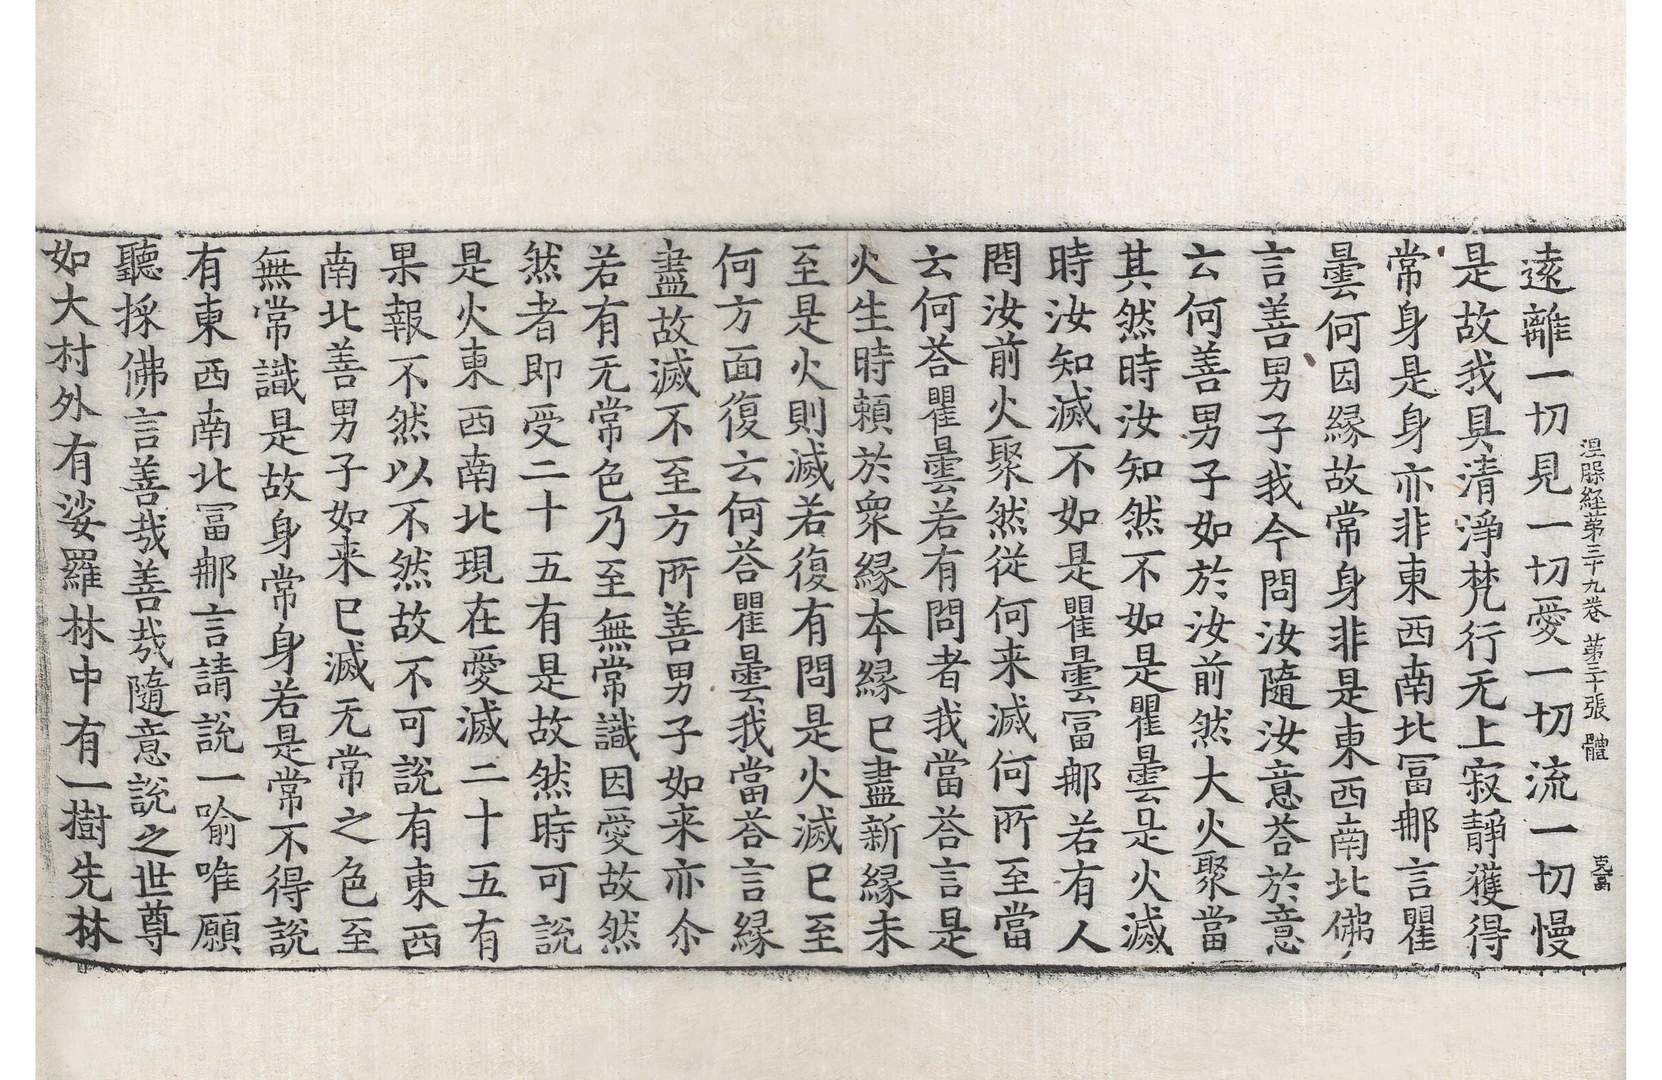 涅槃経第三十九卷 第三十張 體
遠離一切見一切愛一切流一切慢
是故我具清淨梵行无上寂靜獲得
常身是身亦非東西南北冨䣛言瞿
曇何因縁故常身非是東西南北佛
言善男子我今問汝隨汝意荅於意
云何善男子如於汝前然大火聚當
其然時汝知然不如是瞿曇是火滅
時汝知滅不如是瞿曇冨䣛若有人
問汝前火聚然從何来滅何所至當
云何荅瞿曇若有問者我當荅言是
火生時頼於衆縁本縁巳盡新縁未
至是火則滅若復有問是火滅巳至
何方面復云何荅瞿曇我當荅言縁
盡故滅不至方所善男子如来亦尒
若有无常色乃至無常識因愛故然
然者即受二十五有是故然時可說
是火東西南北現在愛滅二十五有
果報不然以不然故不可說有東西
南北善男子如来巳滅无常之色至
無常識是故身常身若是常不得說
有東西南北冨䣛言請說一喻唯願
聽採佛言善㢤善㢤隨意說之世尊
如大村外有娑羅林中有一樹先林